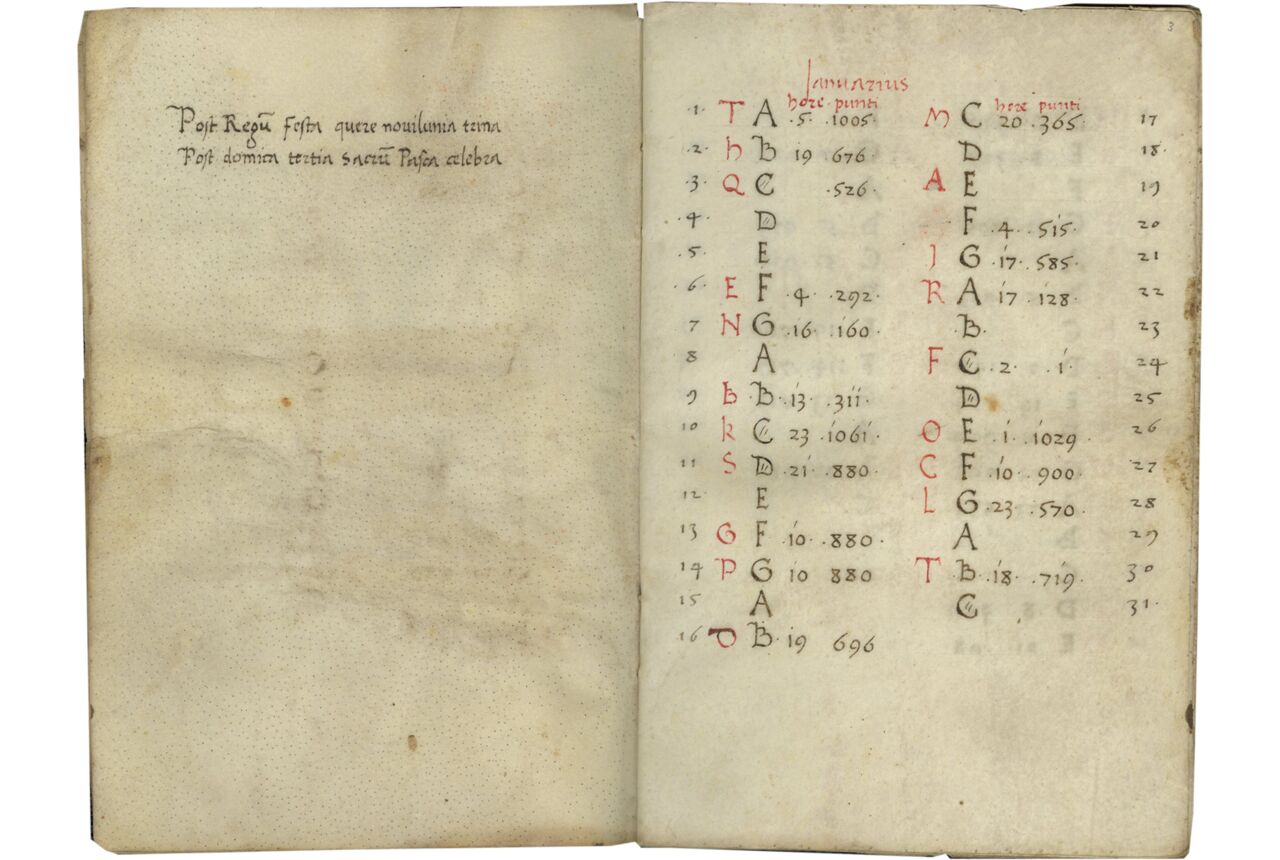 Post Regū festa quere novilunia trina
Post domica tertia sacrū Pasca celebra
3
Ianuarius
hore punti
·1· T A ·5· 1005·
·2· h B 19 676·
·3· Q C ·526·
·4· D
·5· E
·6· E F ·4· ·292·
7 N G ·16· ·160·
8 A
9 B B ·13· ·311·
10 k C 23 ·1061·
11 S D ·21· ·880·
12 E
13 G F ·10· ·880·
14 P G 10 880
15 A
16 D B 19 696
hore punti
M C 20 ·365· 17
D 18·
A E 19
F 4 ·515· 20
I G ·17· ·585· 21
R A ·17 ·128· 22
·B· 23
F C ·2· ·1· 24
D 25
O E ·1· ·1029· 26
C F ·10· 900· 27
L G ·23· ·570· 28
A 29
T B ·18· ·719· 30
C 31·